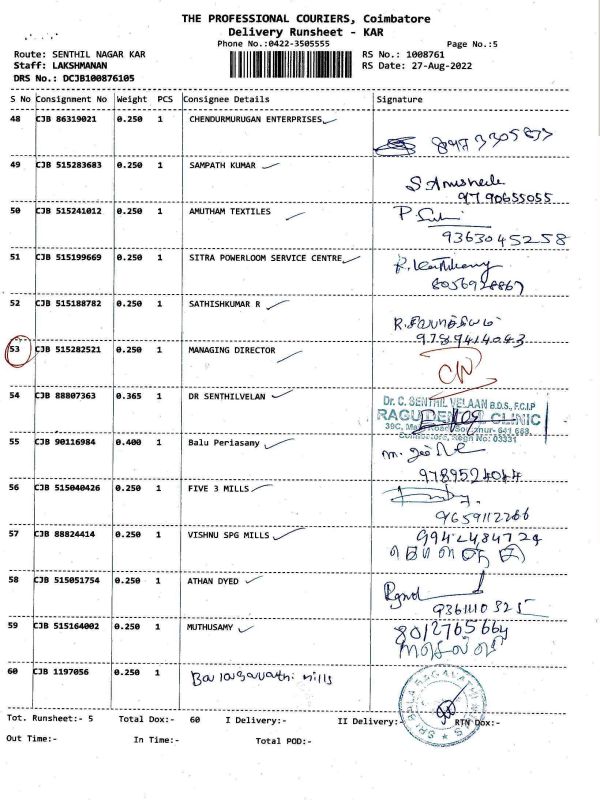 THE PROFESSIONAL COURIERS, Coimbatore
Delivery Runsheet - KAR
Phone No.:0422-3505555
Page No.:5
Route: SENTHIL NAGAR KAR
RS No.: 1008761
Staff: LAKSHMANAN
RS Date: 27-Aug-2022
DRS No.: DCJB100876105
S No Consignment No Weight PCS Consignee Details Signature
48 CJB 86319021 0.250 1 CHENDURMURUGAN ENTERPRISES
49 CJB 515283683 0.250 1 SAMPATH KUMAR
9790655055
50 CJB 515241012 0.250 1 AMUTHAM TEXTILES
9363045258
51 CJB 515199669 0.250 1 SITRA POWERLOOM SERVICE CENTRE
8056928867
52 CJB 515188782 0.250 1 SATHISHKUMAR R
9789414043
53 CJB 515282521 0.250 1 MANAGING DIRECTOR
54 CJB 88807363 0.365 1 DR SENTHILVELAN
Dr. C. SENTHIL VELAAN B.D.S., F.C.I.P
CLINIC
55 CJB 90116984 0.400 1 Balu Periasamy
9789524044
56 CJB 515040426 0.250 1 FIVE 3 MILLS
9659112266
57 CJB 88824414 0.250 1 VISHNU SPG MILLS
9942484724
58 CJB 515051754 0.250 1 ATHAN DYED
9361110325
59 CJB 515164002 0.250 1 MUTHUSAMY
8012765664
60 CJB 1197056 0.250 1 mills
Tot. Runsheet:- 5 Total Dox:- 60 I Delivery:- II Delivery:- RTN Dox:-
Out Time:- In Time:- Total POD:-